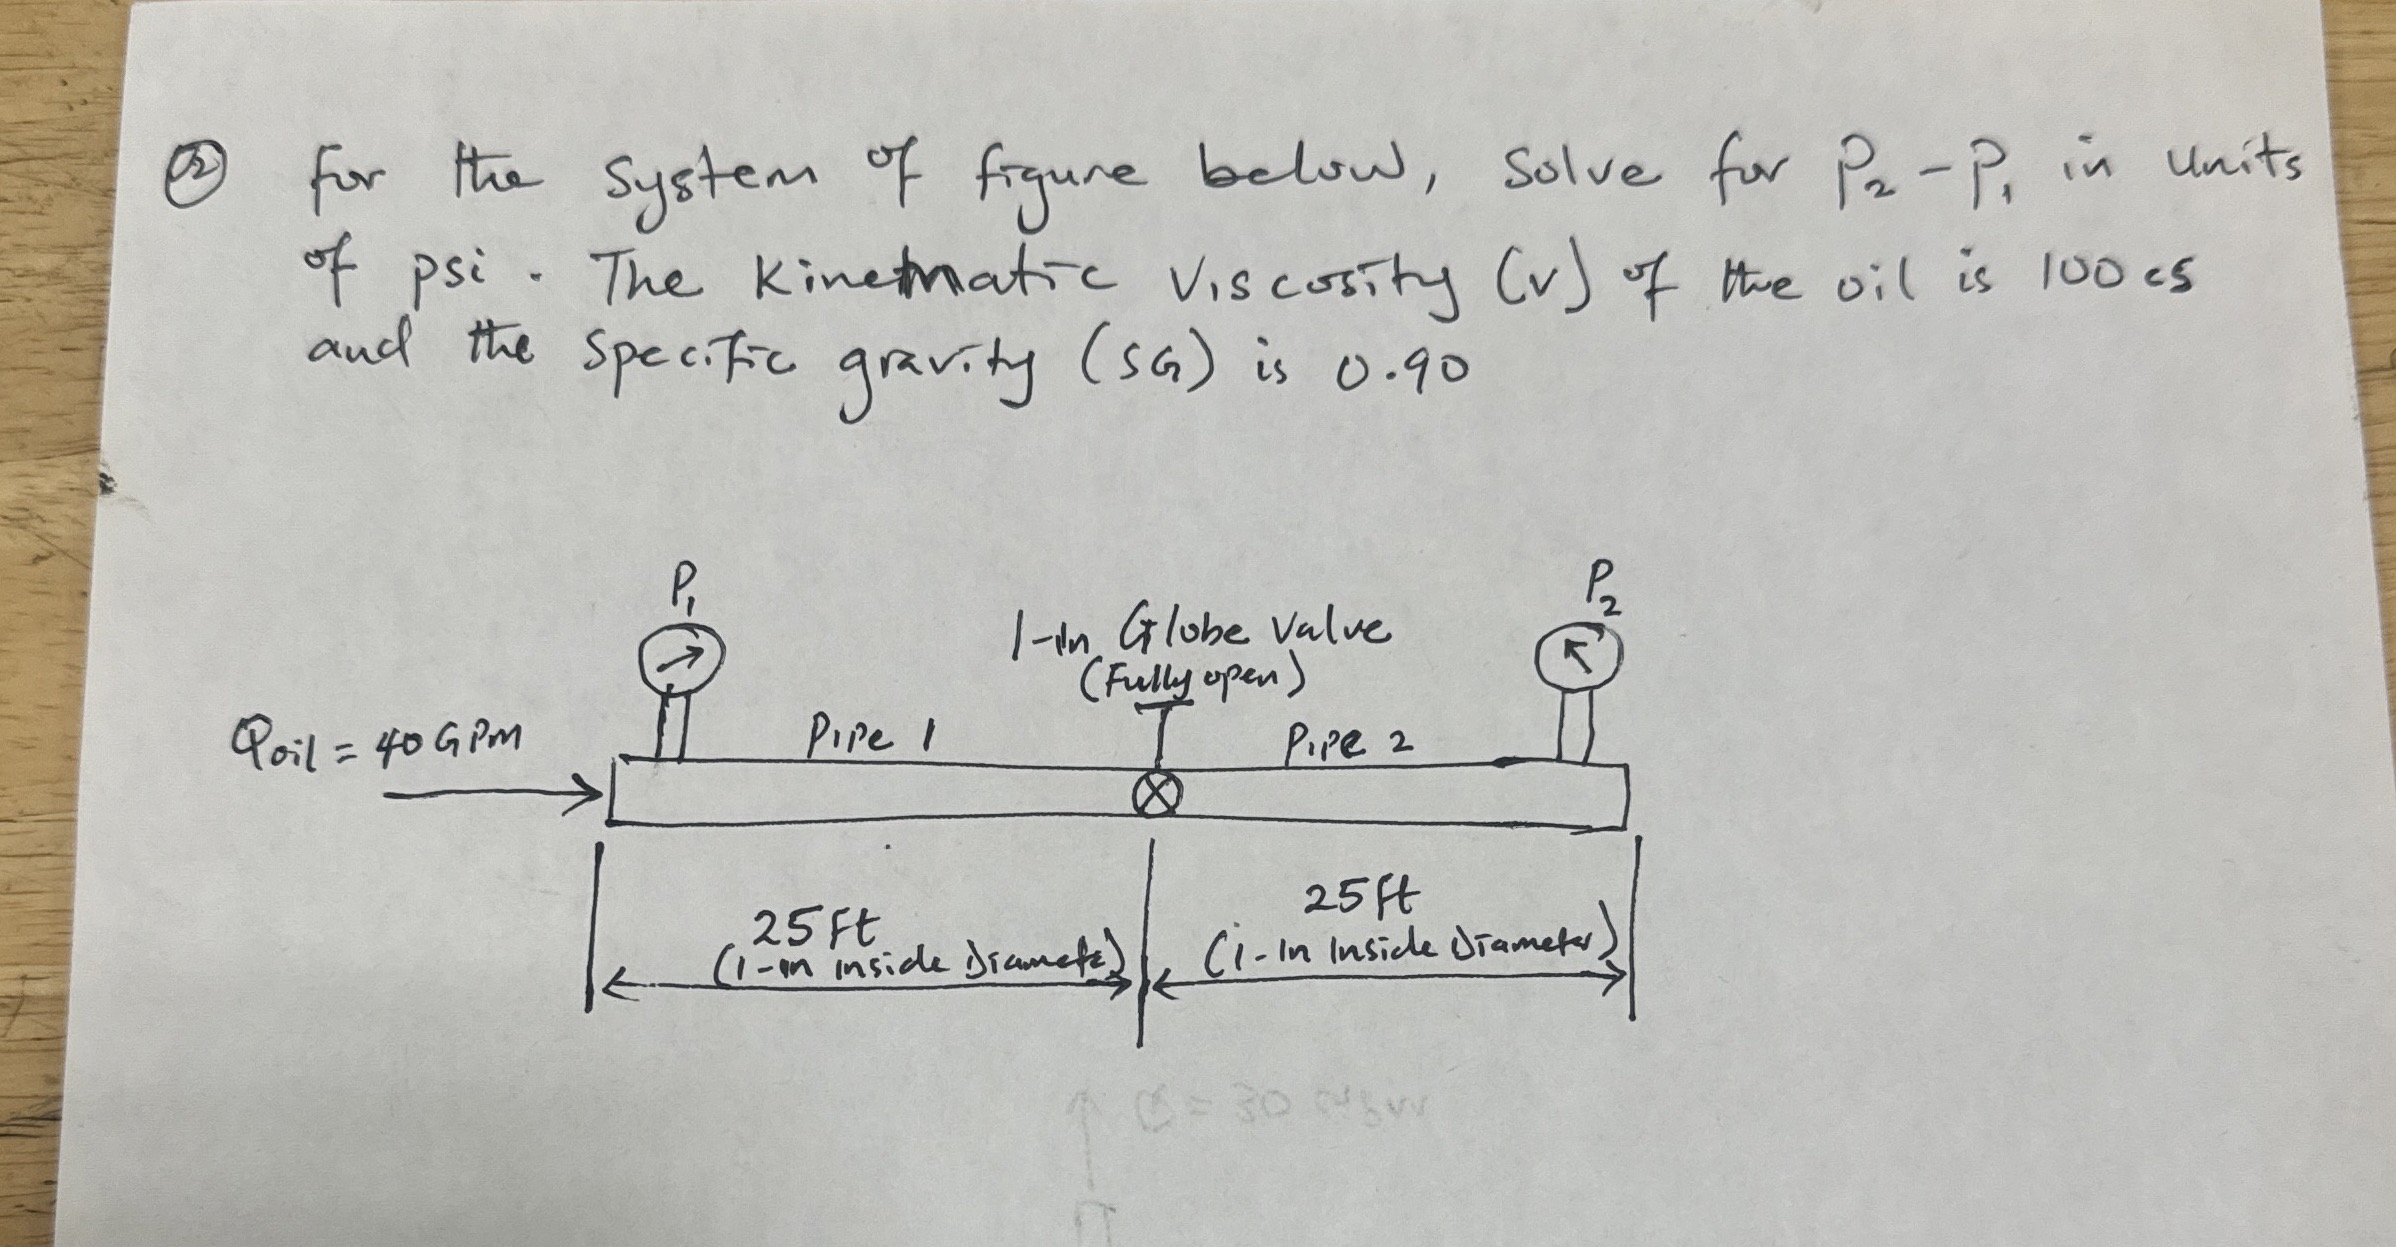 ② for the system of figure below, Solve for P₂-P₁ in units
of psi. The Kinetmatic Viscosity (v) of the oil is 100 cs
and the specific gravity (SG) is 0.90
P₁
P₂
1-in Globe Valve
(Fully open)
Qoil = 40 GPM
Pipe 1
Pipe 2
25 Ft
(1-in inside Diamete)
25 ft
(1-in Inside Diameter)
Q = 30 gpm